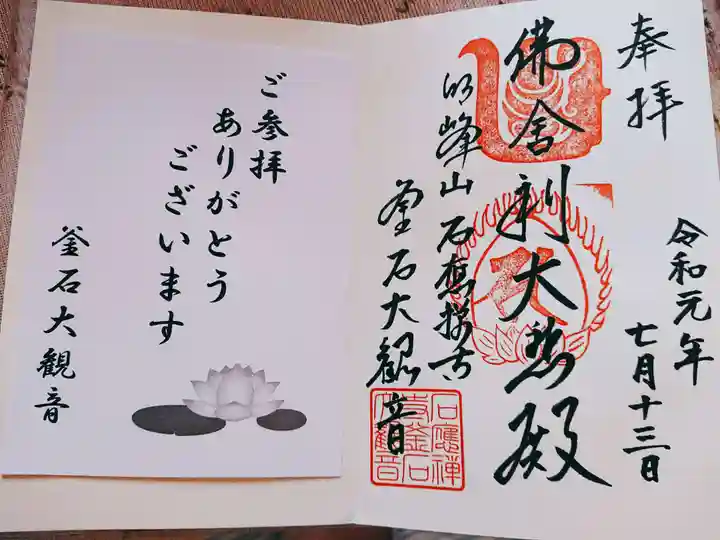 奉拝
令和元年
七月十三日
佛舎利大悲殿
明峰山 石應禅寺
釜石大観音
石應禅
寺釜石
大観音
ご参拝
ありがとう
ございます
釜石大観音